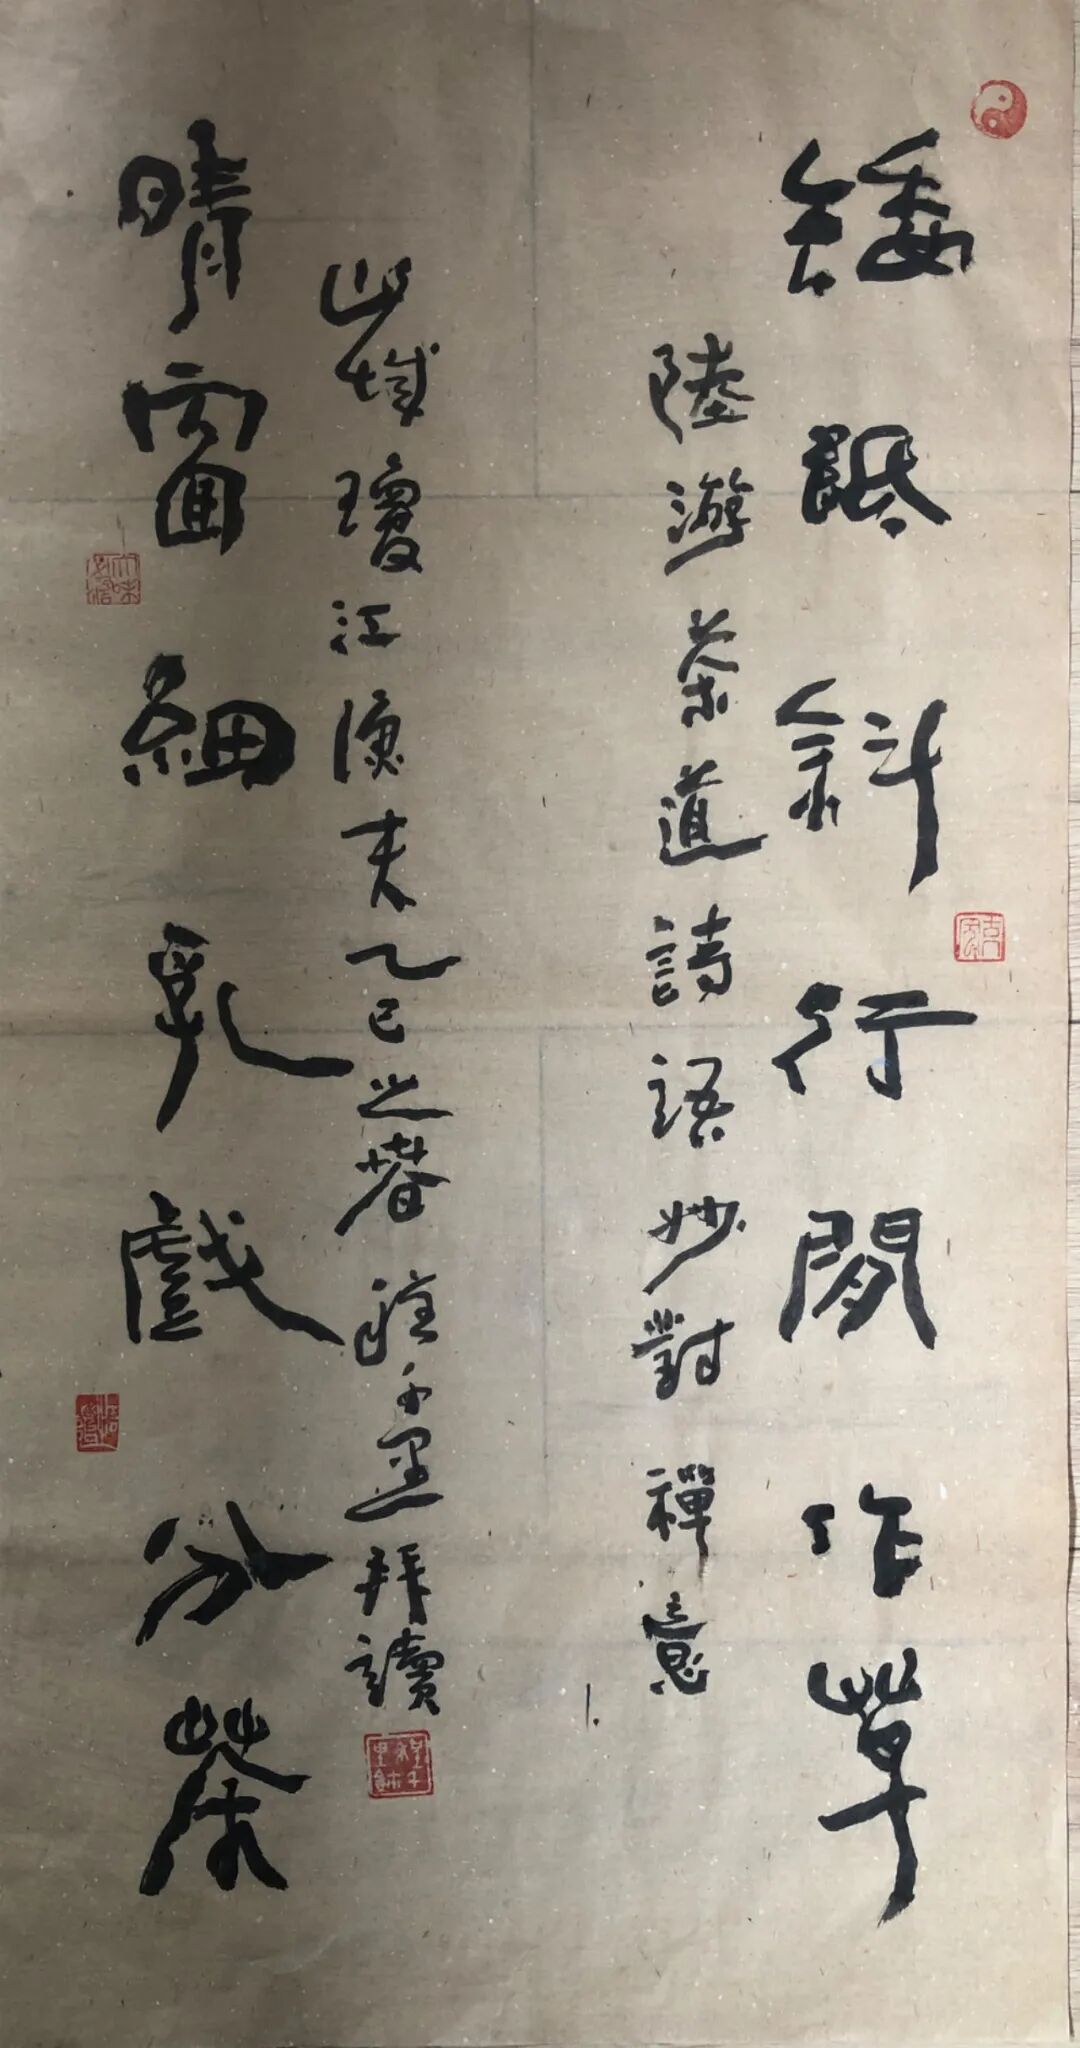 矮紙斜行閒作草
陸游茶道詩語妙對禪意
山城瓊江漁夫乙巳之春拜讀
晴窗細乳戲分茶